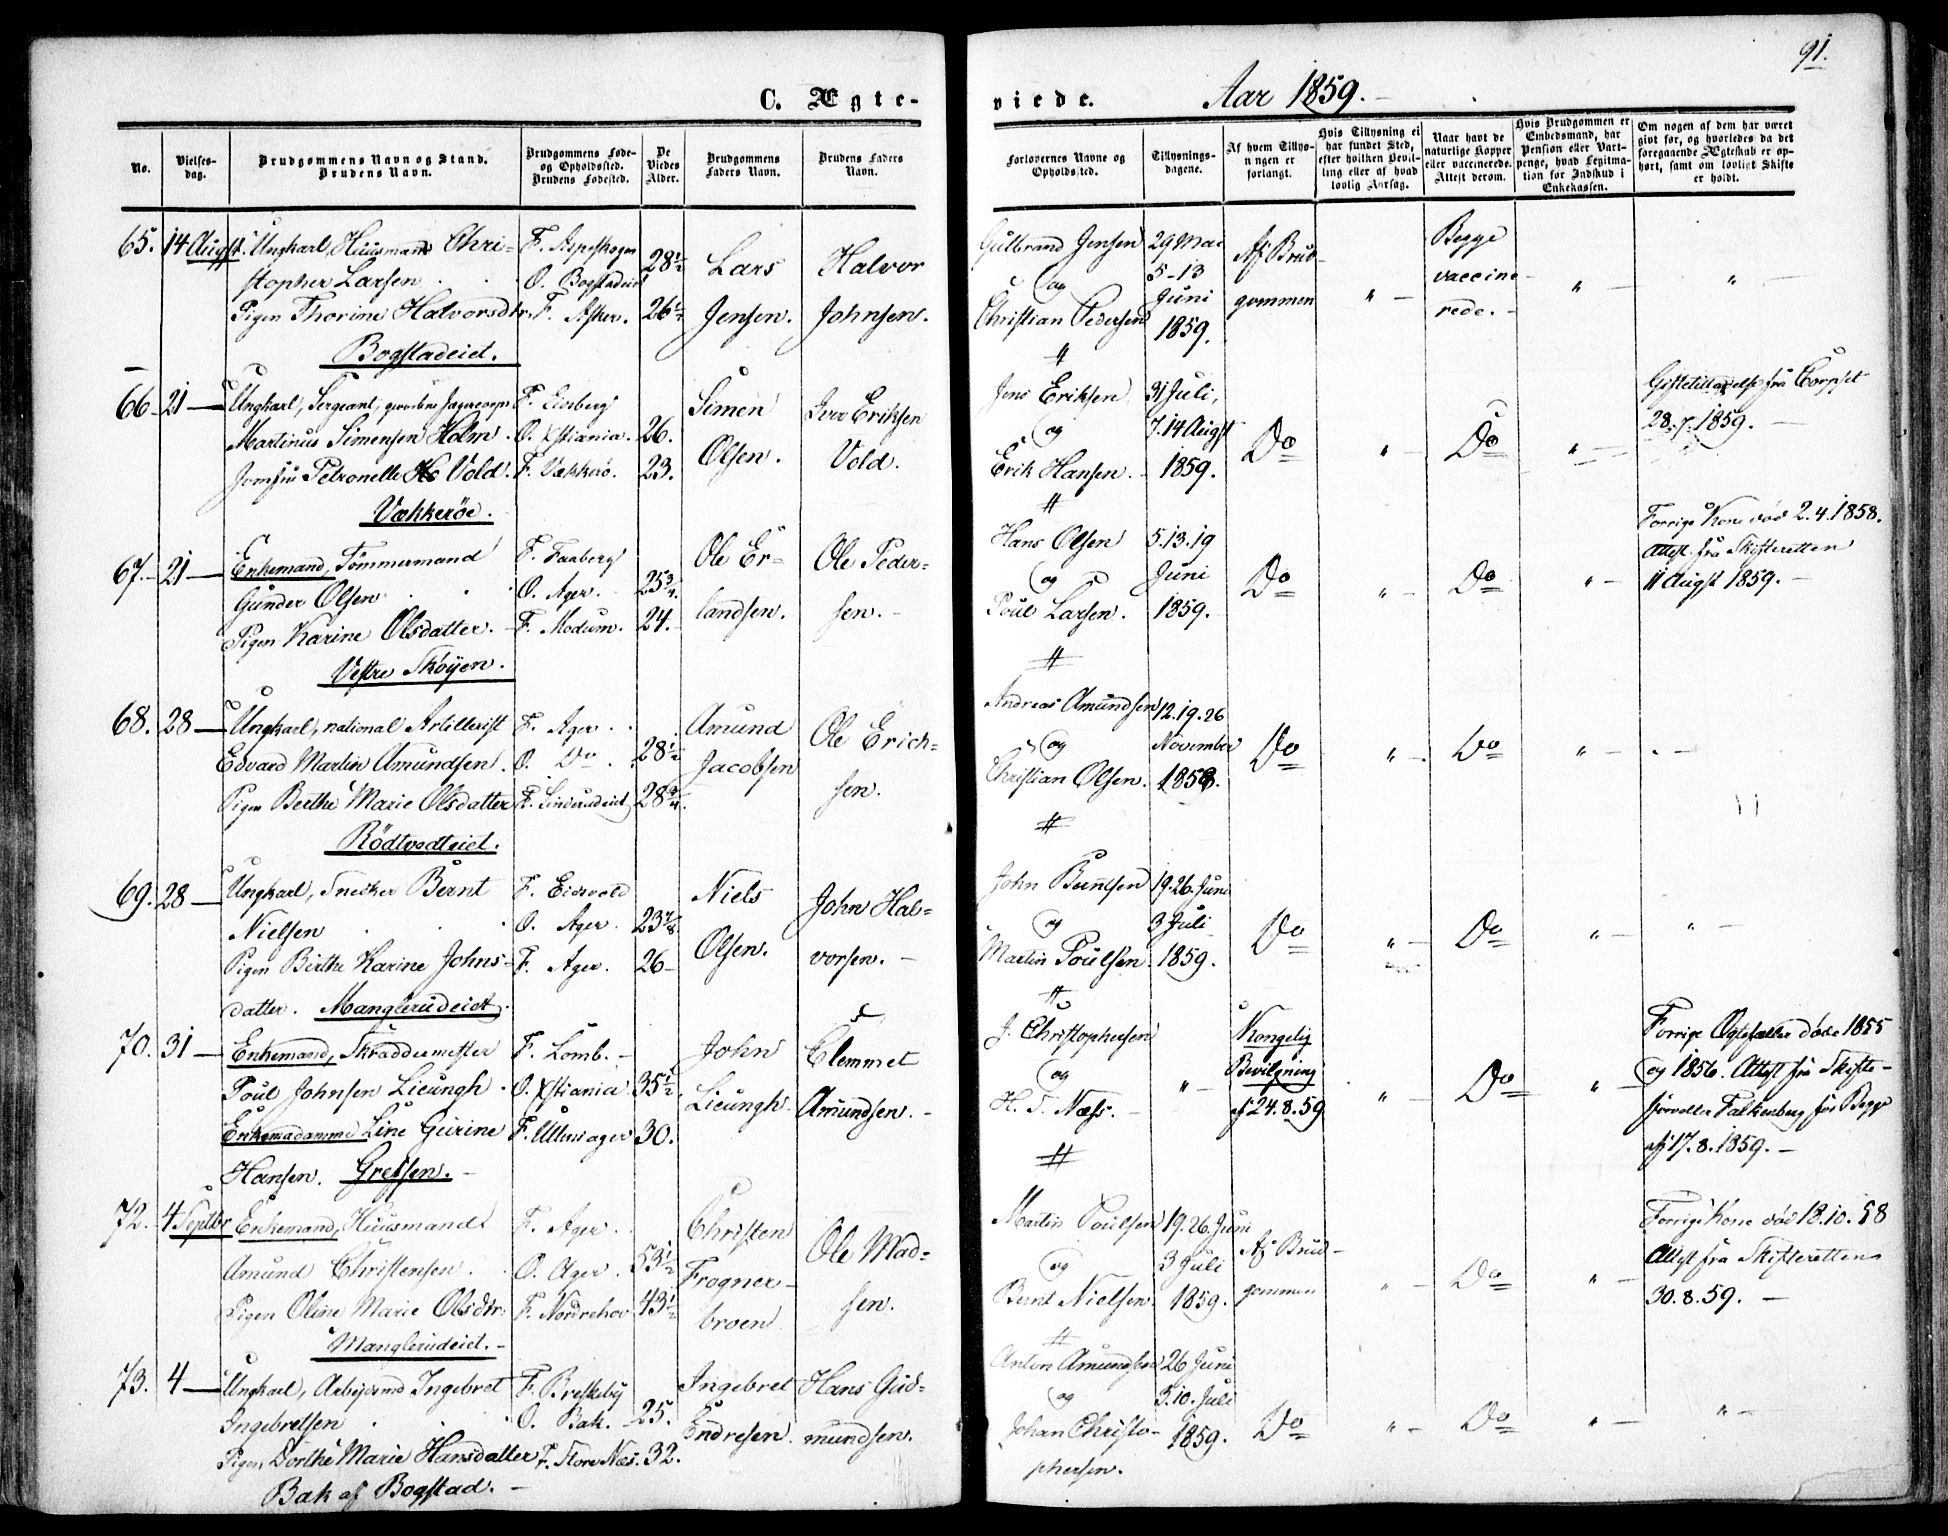 91.
C. Ægte-
viede.
Aar 1859.
No.
Vielses-
dag.
Brudgommens Navn og Stand.
Brudens Navn.
Brudgommens Føde-
og Opholdssted.
Brudens Fødested.
De
Viedes
Alder.
Brudgommens
Faders Navn.
Brudens Faders
Navn.
Forlovernes Navne og
Opholdssted.
Tillysnings-
dagene.
Af hvem Tillys-
ningen er
forlangt.
Hvis Tillysning ei
har fundet Sted,
efter hvilken Bevil-
ling eller af hvad
lovlig Aarsag.
Naar havt de
naturlige Kopper
eller vaccinerede.
Attest derom.
Hvis Brudgommen er
Embedsmand, har
Pension eller Vart-
penge, hvad Legitima-
tion for Indskud i
Enkekassen.
Om nogen af dem har været
givt før, og hvorledes da det
foregaaende Ægteskab er op-
hørt, samt om lovligt Skifte
er holdt.
65. 14 Augst. Ungkarl Huusmand Chri-
stopher Larsen
Pigen Thorine Halvorsdtr.
Bogstadeiet.
O. Bogstadeiet
F. Asker.
28½
26½
Lars
Jensen.
Halvor
Johnsen.
Gulbrand Jensen
og
Christian Pedersen
29 Mai
5-13
Juni
1859.
Af Brud-
gommen
" -
Begge
vaccine-
rede. -
" -
" -
66 21 - Ungkarl, Sergeant,
Martinus Simensen Holm.
Jomfru Petronelle Vold.
Vækkerøe.
F. Eidsberg
O. Xstiania.
F. Vækkerö.
26.
23.
Simen
Olsen.
Iver Eriksen
Vold.
Jens Eriksen
og
Erik Hansen.
31 Juli,
7.14 Augst
1859.
Do
" -
Do
" -
Giftetilladelse fra Corpset
28.7.1859.
67. 21 - Enkemand, Tømmermand
Gunder Olsen
Pigen Karine Olsdatter.
Vestre Skøyen.
F. Faaberg
O. Ager.
F. Modum.
25¾.
24.
Ole Er-
landsen.
Ole Peder-
sen. -
Hans Olsen
og
Poul Larsen.
5.13.19
Juni
1859.
Do
" -
Do
" -
Forrige Kone død 2.4.1858.
Attest fra Skifteretten
11 Augst 1859. -
68. 28 - Ungkarl, national Artillerist
Edvard Martin Amundsen.
Pigen Berthe Marie Olsdatter
Rödtvedteiet.
F. Ager.
O. Do
F. Linderudeiet
28½
28¾.
Amund
Jacobsen
Ole Erich-
sen.
Andreas Amundsen
og
Christian Olsen.
12.19.26
November
1858.
Do
" -
Do
" -
69. 28 - Ungkarl, Snedker Bernt
Nielsen
Pigen Birthe Karine Johns-
datter. Manglerudeiet.
F. Eidsvold
O. Ager.
F. Ager.
23⅞
26 -
Niels
Olsen.
John Hal-
vorsen. -
John Berntsen
og
Martin Poulsen
19.26. Juni
3 Juli
1859.
Do
" -
Do
" -
" -
70. 31 - Enkemand, Skræddermester
Poul Johnsen Lieungh.
Enkemadamme Line Gurine
Hansen. Grefsen. -
F. Lomb. -
O. Xstiania
F. Ullensager
35½.
30.
John
Lieungh.
Clemmet
Amundsen. -
J. Christophersen
og
H. T. Næss. -
" -
Kongelig
Bevilgning
af 24.8.59
" -
Do
" -
Forrige Ægtefæller døde 1855
og 1856. Attest fra Skifte-
forvalter Falkenberg for Begge
af 17.8.1859. -
72. 4 Septbr Enkemand, Huusmand
Amund Christensen.
Pigen Oline Marie Olsdtr.
Manglerudeiet. -
F. Ager.
O. Ager.
F. Nordrehov
53½
43½
Christen
Frogner-
broen
Ole Mad-
sen.
Martin Poulsen
og
Bernt Nielsen.
19.26. Juni
3 Juli
1859.
Af Brud-
gommen
" -
Do
" -
Forrige Kone død 18.10.58
Attest fra Skifteretten
30.8.59. -
73. 4 - Ungkarl, Arbejdsmd Ingebret
Ingebretsen
Pigen Dorthe Marie Hansdatter
Bak af Bogstad. -
F. Breskeby
O. Bak.
F. Store Næs.
25.
32.
Ingebret
Endresen.
Hans Gud-
mundsen.
Anton Amundsen
og
Johan Christo-
phersen.
26 Juni
3.10. Juli
1859.
Do
" -
Do
" -
" -